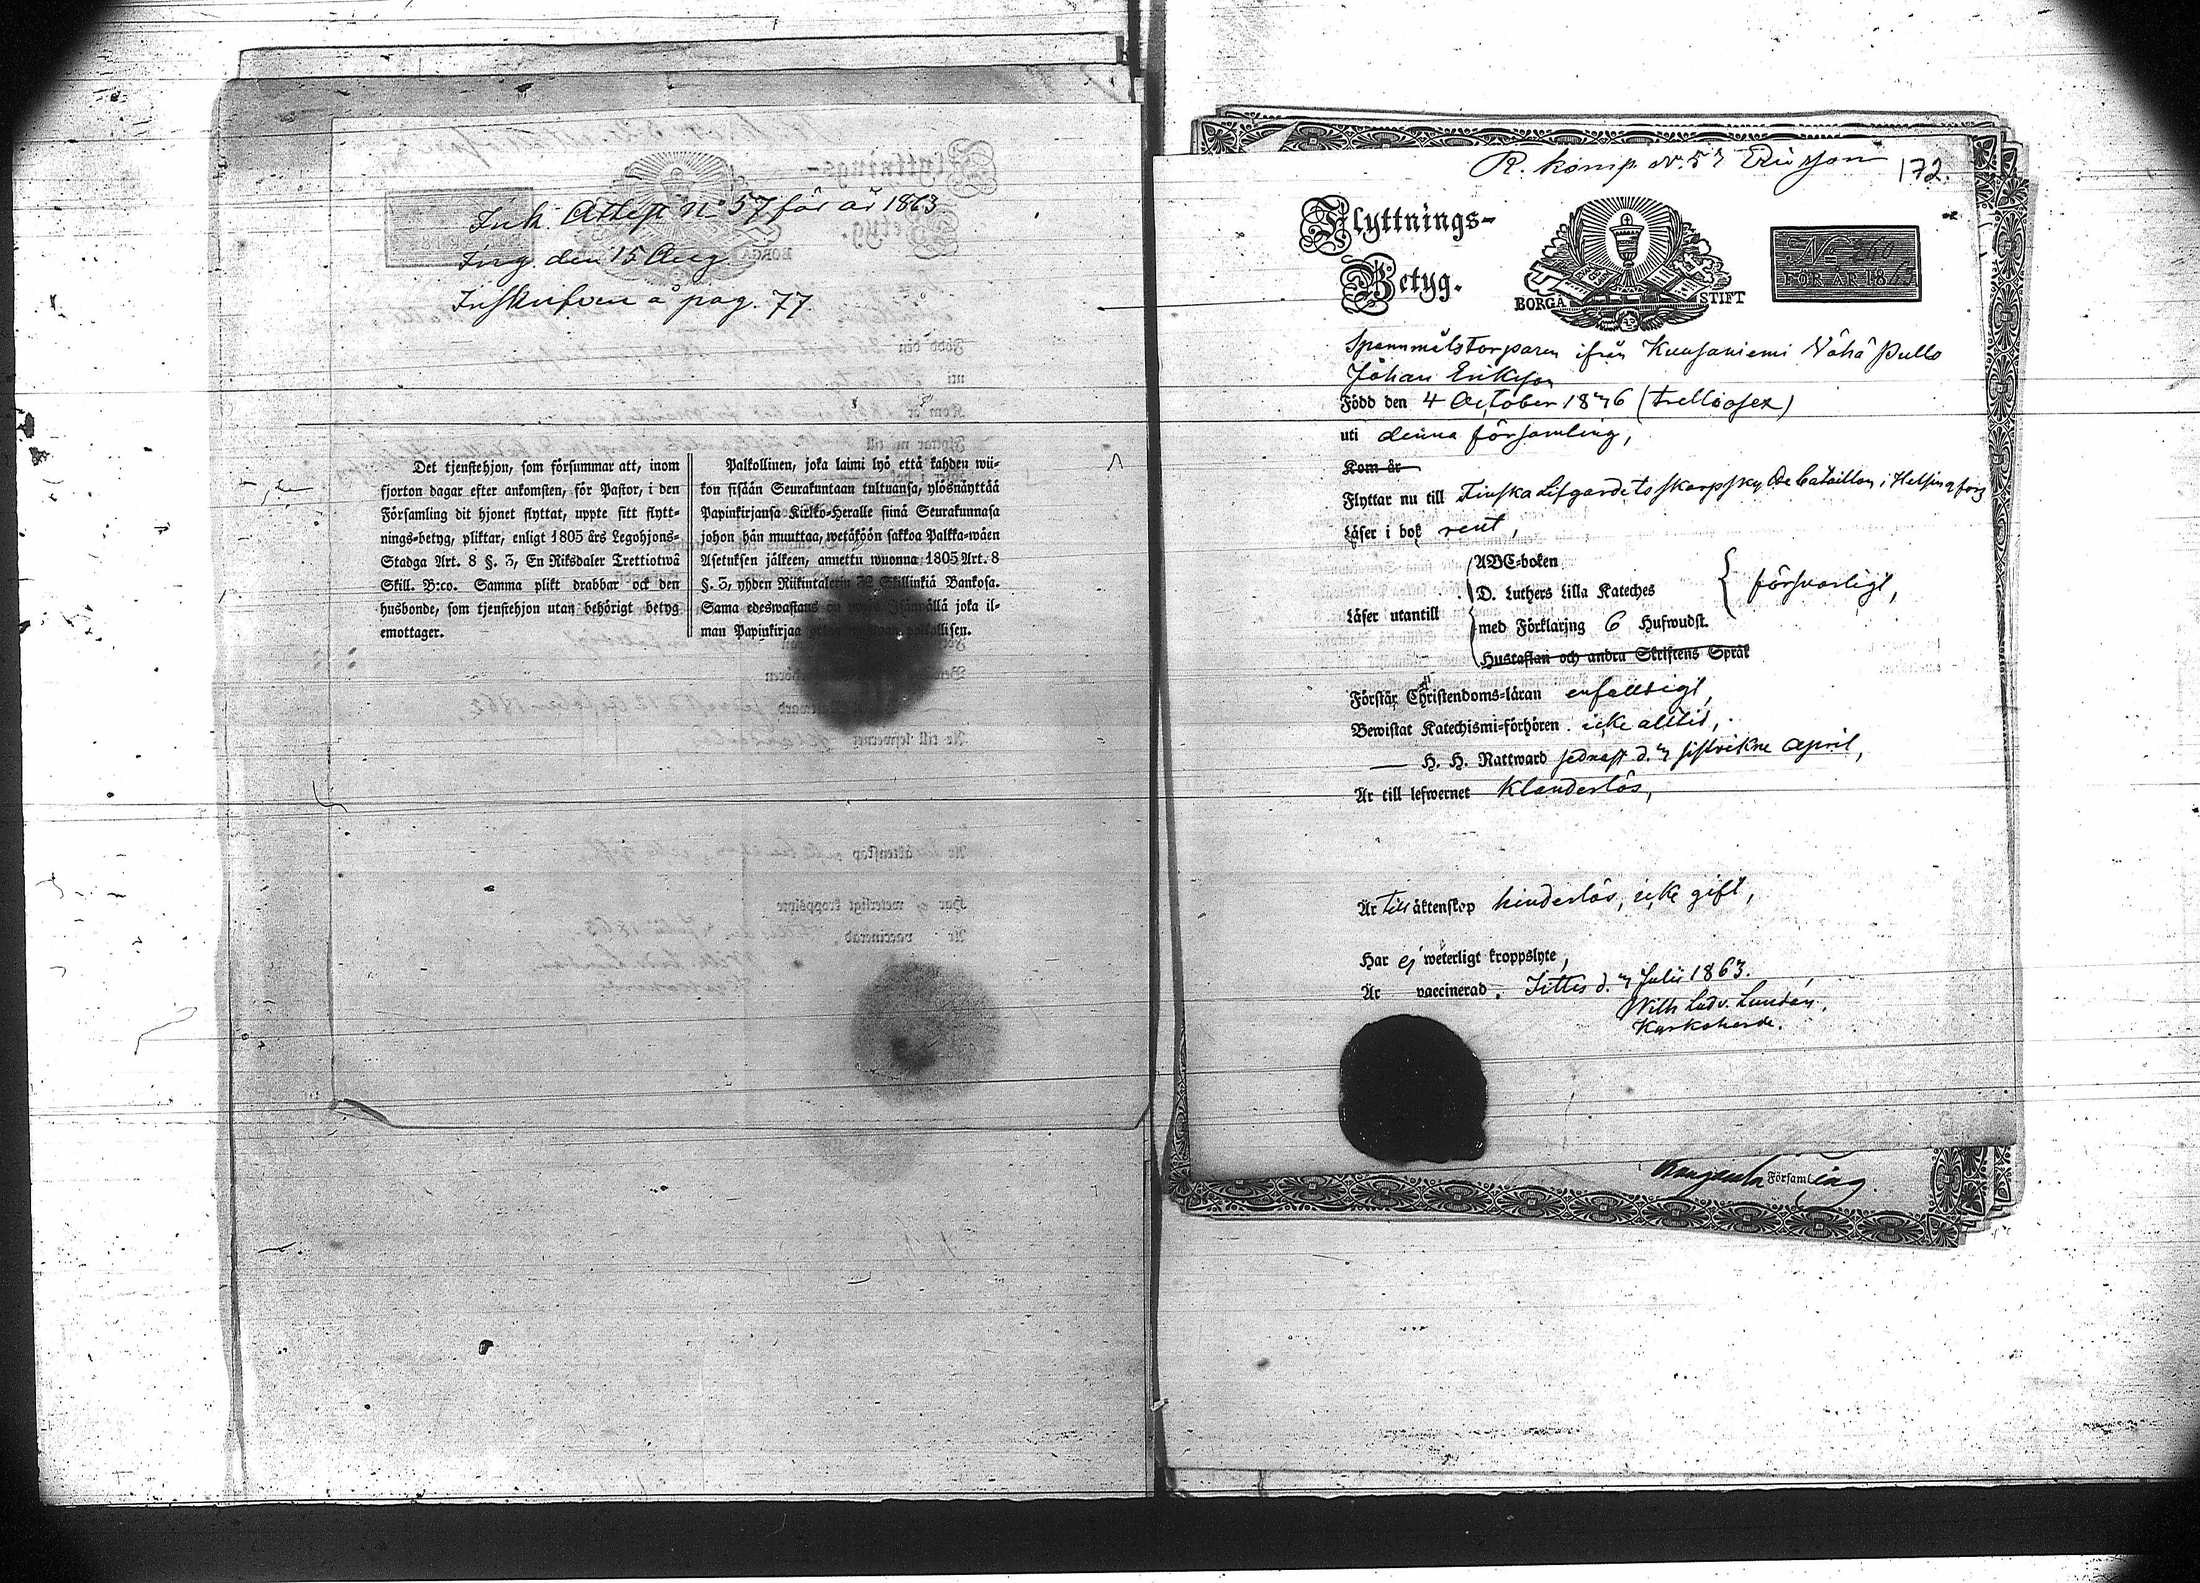 Ink. Attest No 57 för år 1863
Ing. den 15 Aug.
Inskrifven å pag. 77.
Det tjenstehjon, som försummar att, inom
fjorton dagar efter ankomsten, för Pastor, i den
Församling dit hjonet flyttat, uppte sitt flytt-
nings-betyg, pliktar, enligt 1805 års Legohjons-
Stadga Art. 8 §. 3, En Riksdaler Trettiotwå
Skill. B:co. Samma plikt drabbar ock den
husbonde, som tjenstehjon utan behörigt betyg
emottager.
Palkollinen, joka laimi lyö että kahden wii-
kon sisään Seurakuntaan tultuansa, ylösnäyttää
Papinkirjansa Kirkko-Heralle siinä Seurakunnasa
johon hän muuttaa, wetäköön sakkoa Palkka-wäen
Asetuksen jälkeen, annettu wuonna 1805 Art. 8
§. 3, yhden Riikintalerin 32 Skillinkiä Bankosa.
Sama edeswastaus on myös Isännällä joka il-
man Papinkirjaa palkollisen.
R. komp. No. 57 Ericsson 172.
Flyttnings-
Betyg.
BORGÅ STIFT
No 260
FÖR ÅR 1863
Spannmålstorparen ifrån Kuusaniemi Vähä Pullo
Johan Eriksson
Född den 4 October 18 6
uti denna församling,
Kom år
Flyttar nu till Finska Lifgardets skarpskytte bataillon i Helsingfors
Läser i bok rent,
Läser utantill
ABC-boken
D. Luthers Lilla Kateches
med Förklaring 6 Hufwudst.
Hustaflan och andra Skriftens Språk
försvarligt,
Förstår Christendoms-läran enfalldigt,
Bewistat Katechismi-förhören icke alltid,
— H. H. Nattward sednast d. sistvikne April,
Är till lefwernet klanderlös,
Är till äktenskap hinderlös, icke gift,
Har ej weterligt kroppslyte,
Är vaccinerad. Jittes d. Julii 1863.
Wilh Ludv. Lundán,
Kyrkoherde.
Församling.